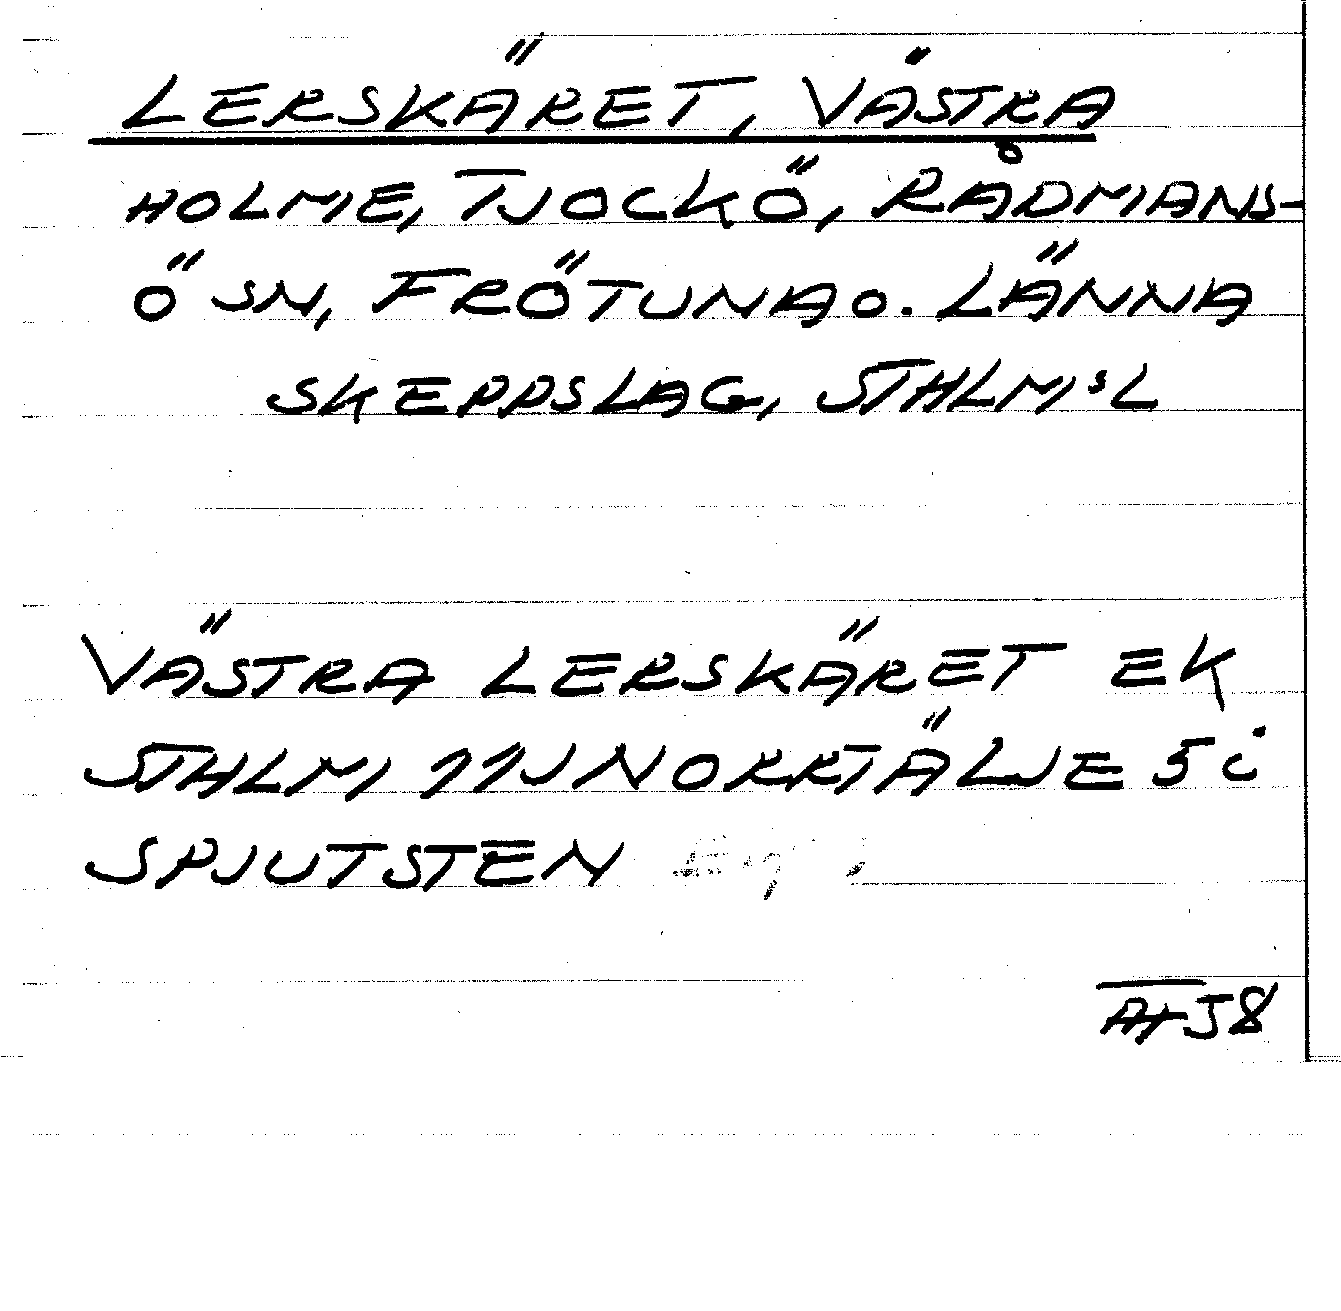 LERSKÄRET, VÄSTRA
HOLME, TJOCKÖ, RÅDMANS-
Ö SN, FRÖTUNA O. LÄNNA
SKEPPSLAG, STHLMˢ L
VÄSTRA LERSKÄRET EK
STHLM 11J NORRTÄLJE 5 i
SPJUTSTEN
58